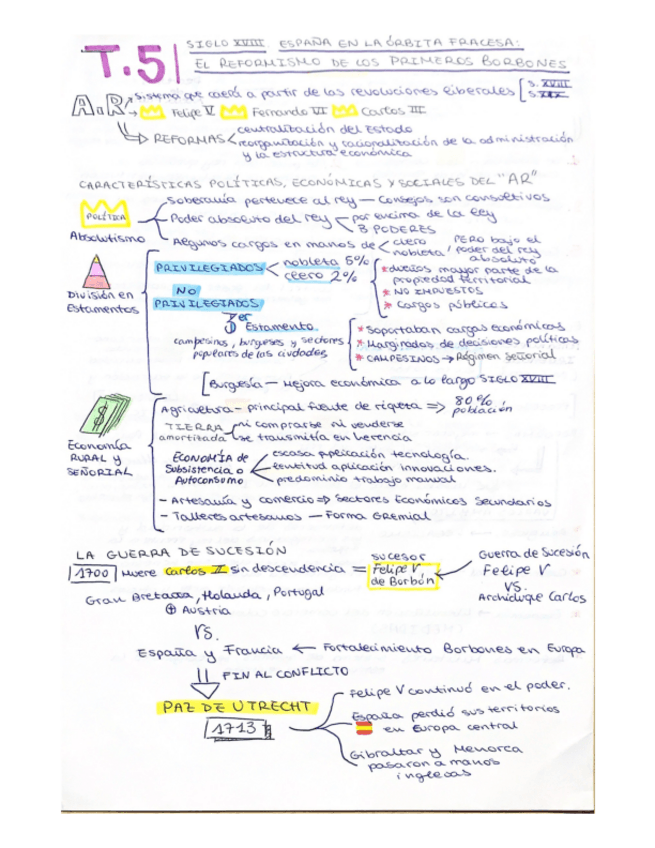 T.5
SIGLO XVIII. ESPAÑA EN LA ÓRBITA FRACESA:
EL REFORMISMO DE LOS PRIMEROS BORBONES
A.R
Sistema que caerá a partir de las revoluciones liberales
S. XVIII
S. XIX
Felipe V Fernando VI Carlos III
REFORMAS
centralización del Estado
reorganización y racionalización de la administración
y la estructura económica
CARACTERÍSTICAS POLÍTICAS, ECONÓMICAS Y SOCIALES DEL "AR"
POLÍTICA
Absolutismo
Soberanía pertenece al rey — Consejos son consultivos
Poder absoluto del rey
por encima de la ley
3 PODERES
Algunos cargos en manos de
clero
nobleza
PERO bajo el
poder del rey
absoluto
División en
Estamentos
PRIVILEGIADOS
nobleza 5%
clero 2%
* dueños mayor parte de la
propiedad territorial
* NO IMPUESTOS
* Cargos públicos
NO
PRIVILEGIADOS
3er
Estamento.
campesinos, burgueses y sectores
populares de las ciudades
* Soportaban cargas económicas
* Marginados de decisiones políticas
* CAMPESINOS → Régimen señorial
Burguesía — Mejora económica a lo largo SIGLO XVIII
Economía
RURAL y
SEÑORIAL
Agricultura - principal fuente de riqueza ⇒ 80%
población
TIERRA
amortitada
ni comprarse ni venderse
se transmitía en herencia
ECONOMÍA de
Subsistencia o
Autoconsumo
escasa aplicación tecnología.
lentitud aplicación innovaciones.
predominio trabajo manual
- Artesanía y comercio ⇒ Sectores Económicos Secundarios
- Talleres artesanos — Forma Gremial
LA GUERRA DE SUCESIÓN
1700 Muere Carlos II sin descendencia =
sucesor
Felipe V
de Borbón
Guerra de Sucesión
Felipe V
VS.
Archiduque Carlos
Gran Bretaña, Holanda, Portugal
⊕ Austria
VS.
España y Francia ← Fortalecimiento Borbones en Europa
FIN AL CONFLICTO
PAZ DE UTRECHT
1713
Felipe V continuó en el poder.
España perdió sus territorios
en Europa central
Gibraltar y Menorca
pasaron a manos
inglesas